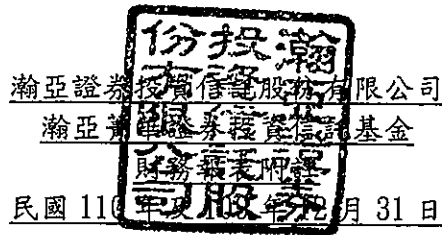 瀚亞證券投資信託股份有限公司
瀚亞菁華證券投資信託基金
財務報表附註
民國 110 年及 年 12 月 31 日